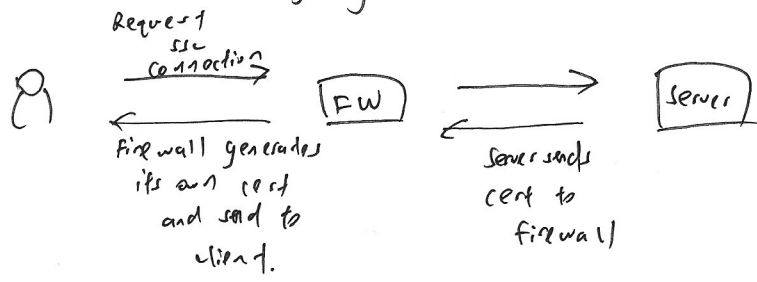 Request
SSL
connection
FW
Server
Firewall generates
its own cert
and send to
client.
Server sends
cert to
firewall